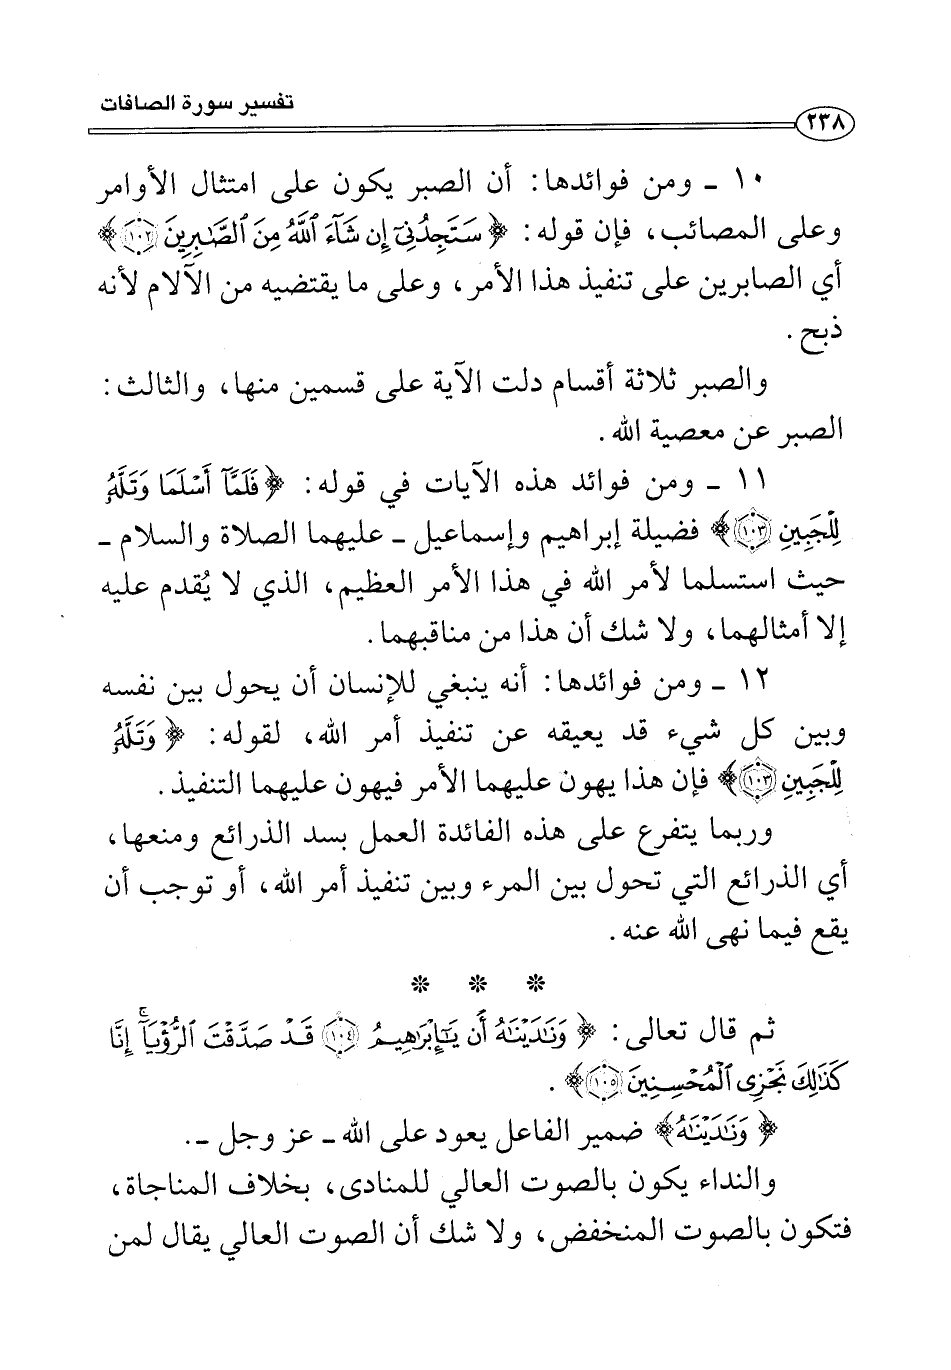 تفسير سورة الصافات
٢٣٨
١٠ ـ ومن فوائدها: أن الصبر يكون على امتثال الأوامر
وعلى المصائب، فإن قوله: ﴿سَتَجِدُنِىٓ إِن شَآءَ ٱللَّهُ مِنَ ٱلصَّـٰبِرِينَ ١٠٢﴾
أي الصابرين على تنفيذ هذا الأمر، وعلى ما يقتضيه من الآلام لأنه
ذبح.
والصبر ثلاثة أقسام دلت الآية على قسمين منها، والثالث:
الصبر عن معصية الله.
١١ ـ ومن فوائد هذه الآيات في قوله: ﴿فَلَمَّآ أَسْلَمَا وَتَلَّهُۥ
لِلْجَبِينِ ١٠٣﴾ فضيلة إبراهيم وإسماعيل ـ عليهما الصلاة والسلام ـ
حيث استسلما لأمر الله في هذا الأمر العظيم، الذي لا يُقدم عليه
إلا أمثالهما، ولا شك أن هذا من مناقبهما.
١٢ ـ ومن فوائدها: أنه ينبغي للإنسان أن يحول بين نفسه
وبين كل شيء قد يعيقه عن تنفيذ أمر الله، لقوله: ﴿وَتَلَّهُۥ
لِلْجَبِينِ ١٠٣﴾ فإن هذا يهون عليهما الأمر فيهون عليهما التنفيذ.
وربما يتفرع على هذه الفائدة العمل بسد الذرائع ومنعها،
أي الذرائع التي تحول بين المرء وبين تنفيذ أمر الله، أو توجب أن
يقع فيما نهى الله عنه.
* * *
ثم قال تعالى: ﴿وَنَـٰدَيْنَـٰهُ أَن يَـٰٓإِبْرَٰهِيمُ ١٠٤ قَدْ صَدَّقْتَ ٱلرُّؤْيَآ ۚ إِنَّا
كَذَٰلِكَ نَجْزِى ٱلْمُحْسِنِينَ ١٠٥﴾.
﴿وَنَـٰدَيْنَـٰهُ﴾ ضمير الفاعل يعود على الله ـ عز وجل ـ.
والنداء يكون بالصوت العالي للمنادى، بخلاف المناجاة،
فتكون بالصوت المنخفض، ولا شك أن الصوت العالي يقال لمن